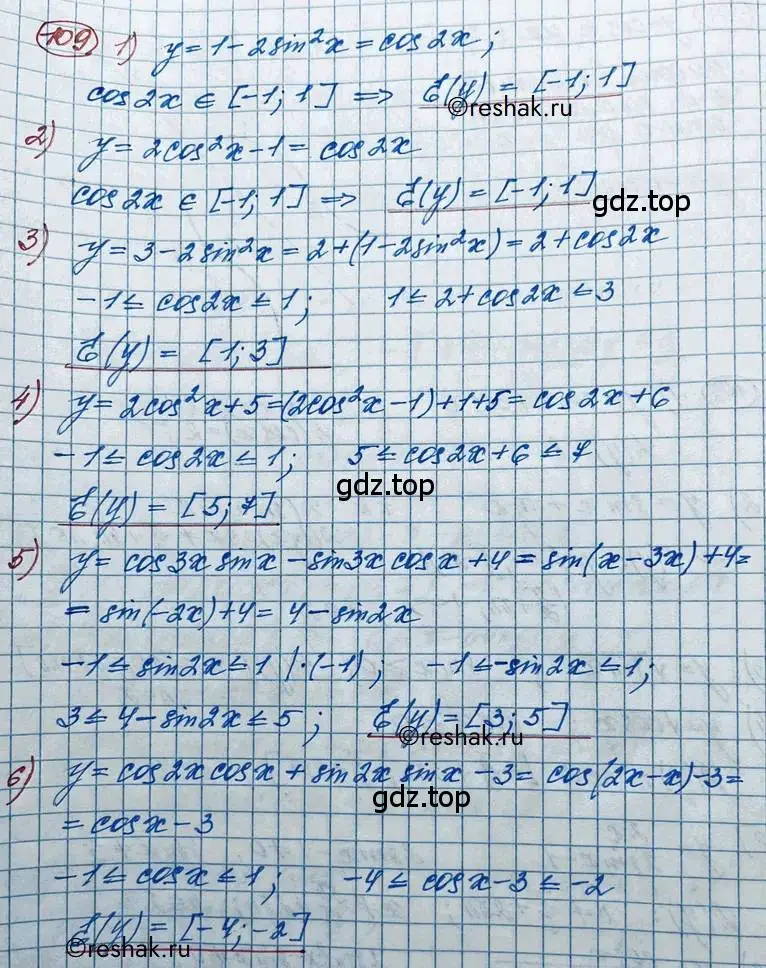 109. 1) y = 1 - 2sin²x = cos2x;
cos2x ∈ [-1; 1] => E(y) = [-1; 1]
©reshak.ru
2) y = 2cos²x - 1 = cos2x
cos2x ∈ [-1; 1] => E(y) = [-1; 1]
gdz.top
3) y = 3 - 2sin²x = 2 + (1 - 2sin²x) = 2 + cos2x
-1 ≤ cos2x ≤ 1; 1 ≤ 2 + cos2x ≤ 3
E(y) = [1; 3]
4) y = 2cos²x + 5 = (2cos²x - 1) + 1 + 5 = cos2x + 6
-1 ≤ cos2x ≤ 1; 5 ≤ cos2x + 6 ≤ 7
gdz.top
E(y) = [5; 7]
5) y = cos3x sinx - sin3x cosx + 4 = sin(x - 3x) + 4 =
= sin(-2x) + 4 = 4 - sin2x
-1 ≤ sin2x ≤ 1 |·(-1); -1 ≤ -sin2x ≤ 1;
3 ≤ 4 - sin2x ≤ 5; E(y) = [3; 5]
©reshak.ru
6) y = cos2x cosx + sin2x sinx - 3 = cos(2x - x) - 3 =
gdz.top
= cosx - 3
-1 ≤ cosx ≤ 1; -4 ≤ cosx - 3 ≤ -2
E(y) = [-4; -2]
©reshak.ru